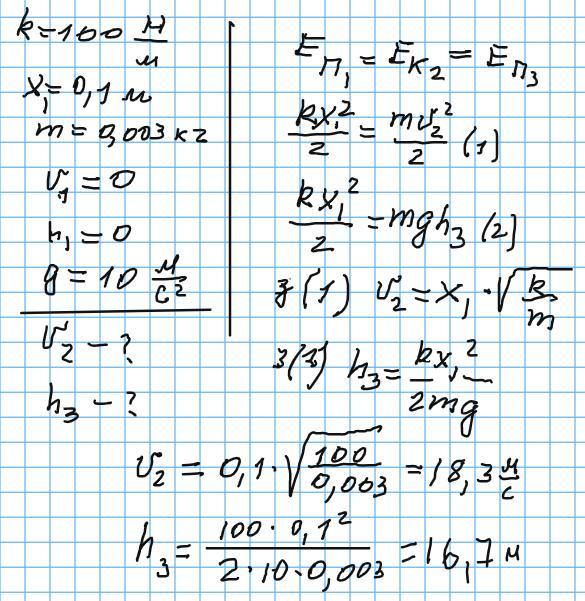 k=100 Н/м
x₁=0,1 м
m=0,003 кг
v₁=0
h₁=0
g=10 м/с²
v₂-?
h₃-?
Eп₁=Eк₂=Eп₃
kx₁²/2=mv₂²/2 (1)
kx₁²/2=mgh₃ (2)
з (1) v₂=x₁·√(k/m)
з (2) h₃=kx₁²/2mg
v₂=0,1·√(100/0,003)=18,3 м/с
h₃=100·0,1²/2·10·0,003=16,7 м